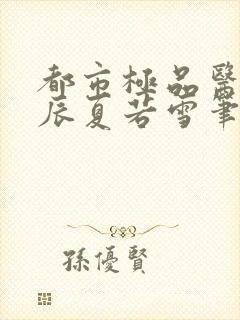 都市極品醫
辰夏若雪筆
孫優賢